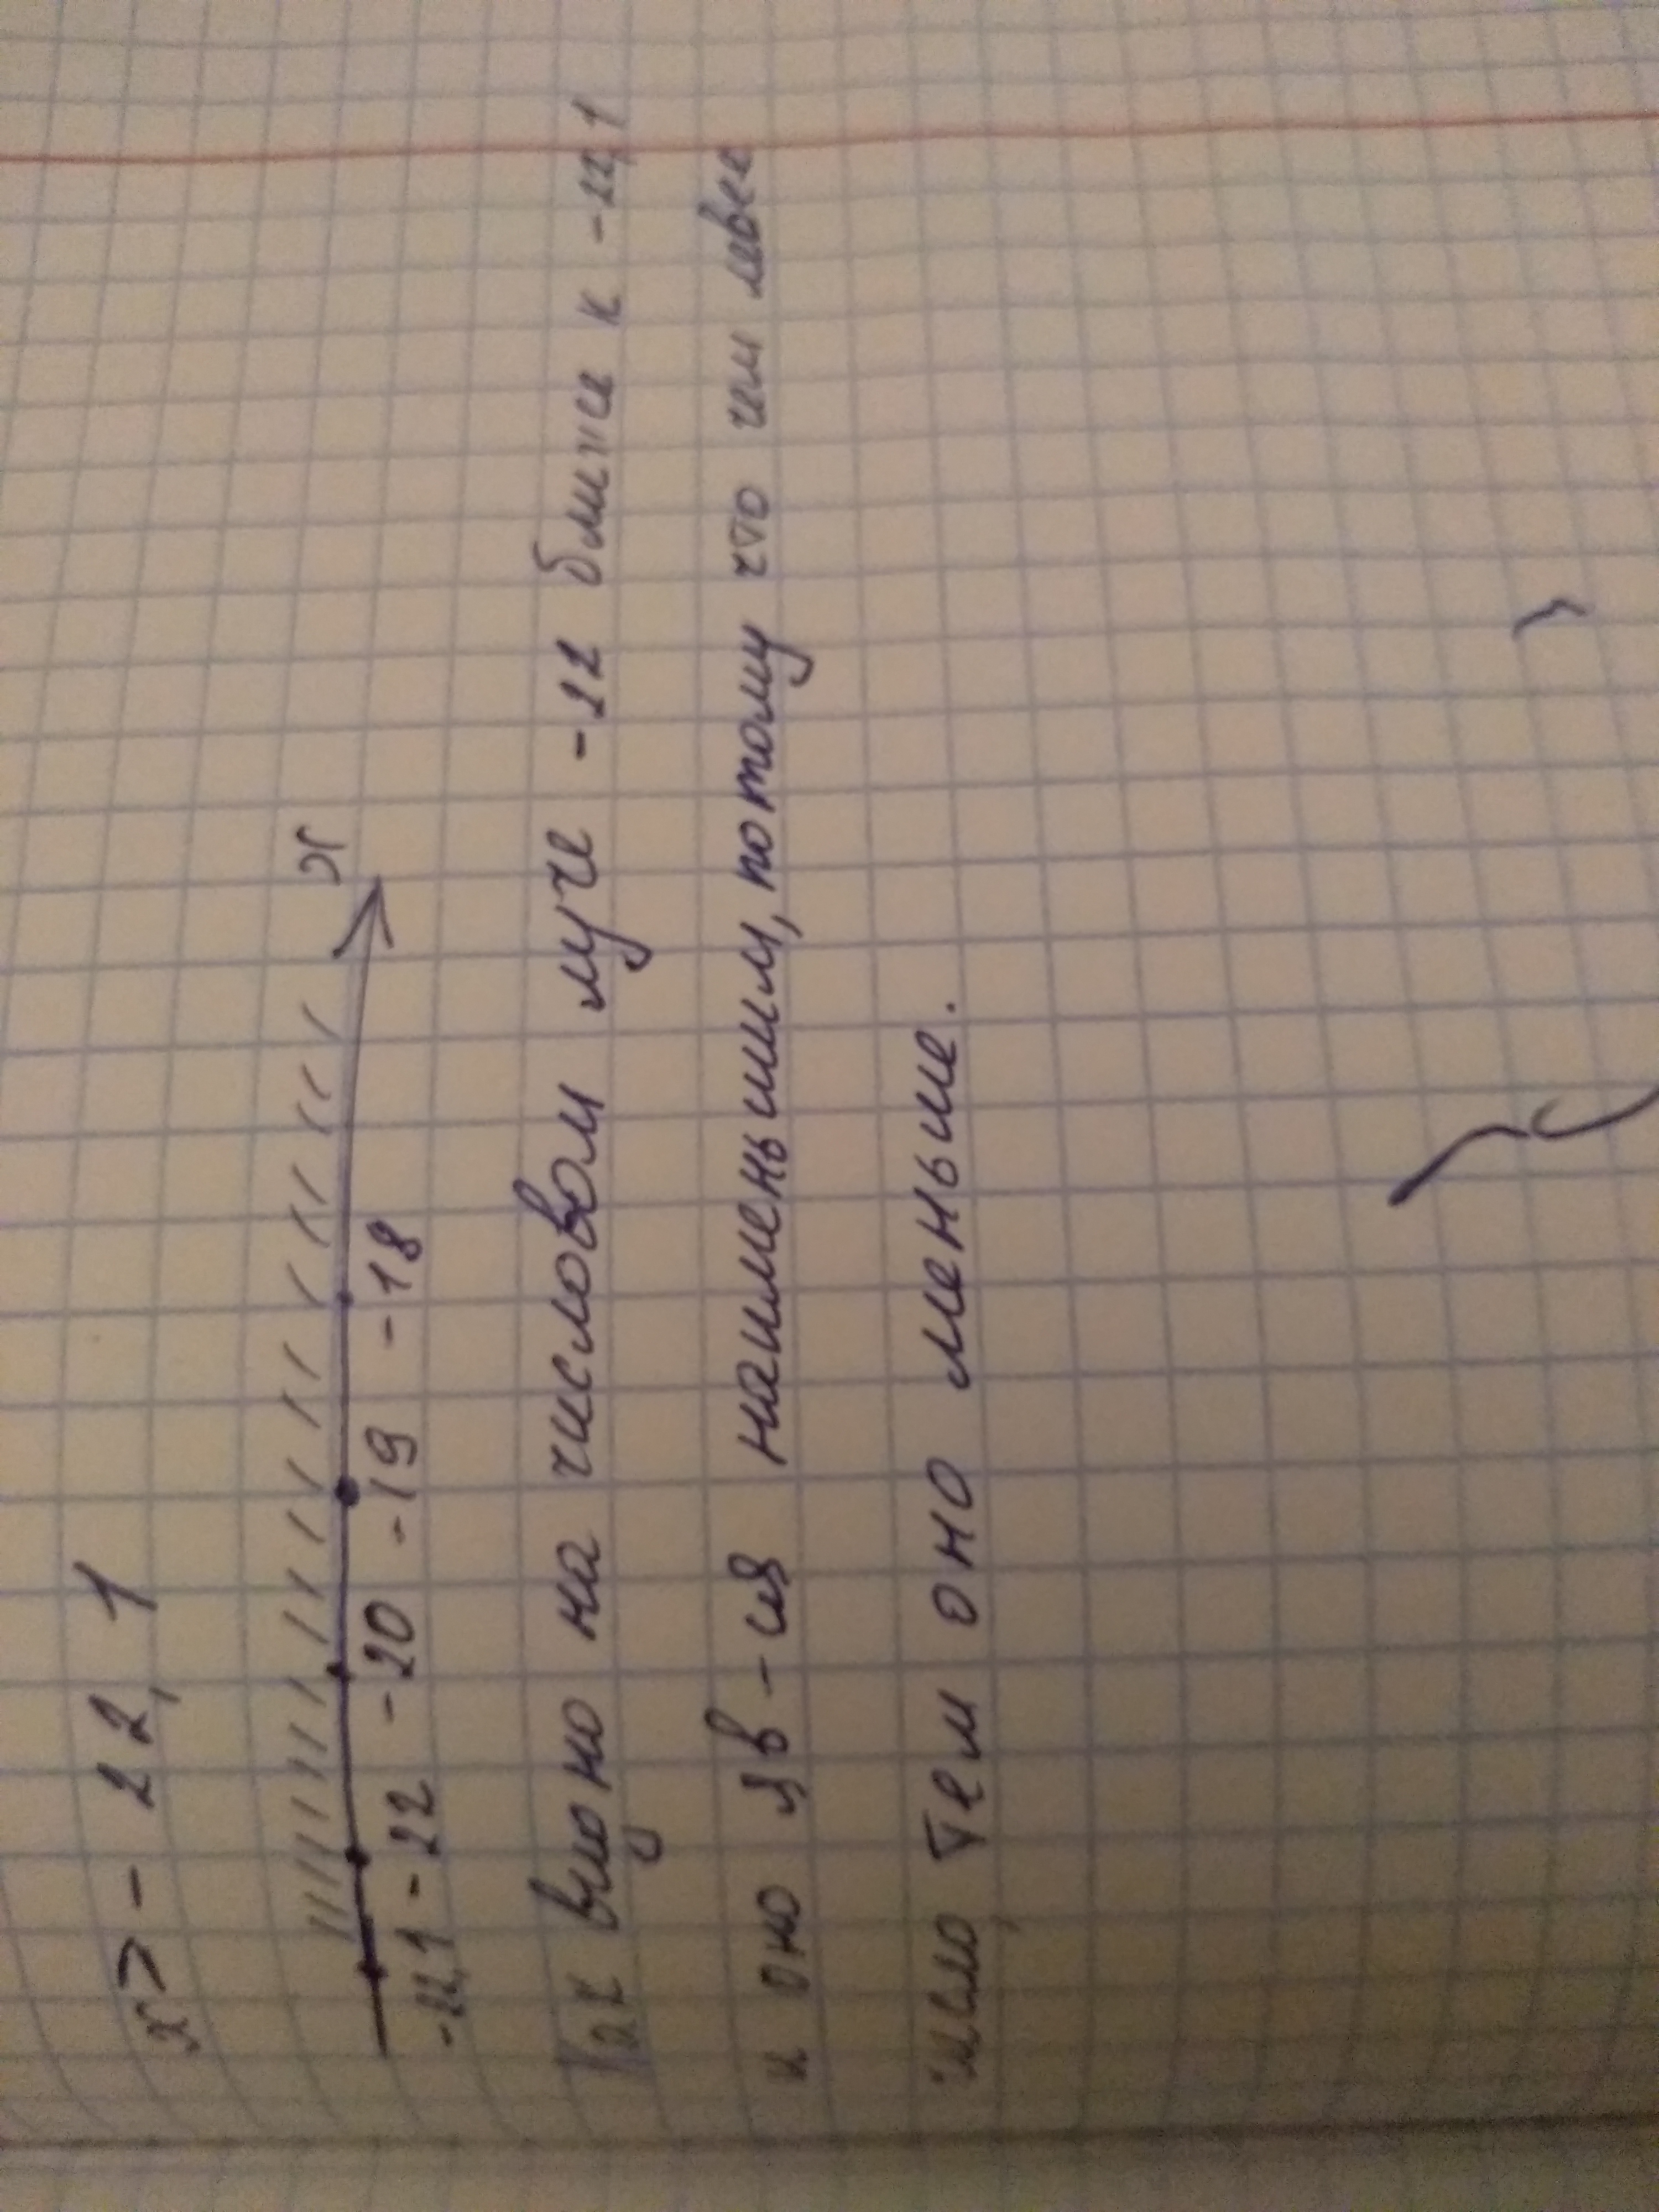 x > - 22,1
x
-22,1 -22 -20 -19 -18
Как видно на числовом луче -22 ближе к -22,1
и оно яв-ся наименьшим, потому что чем левее
число, тем оно меньше.